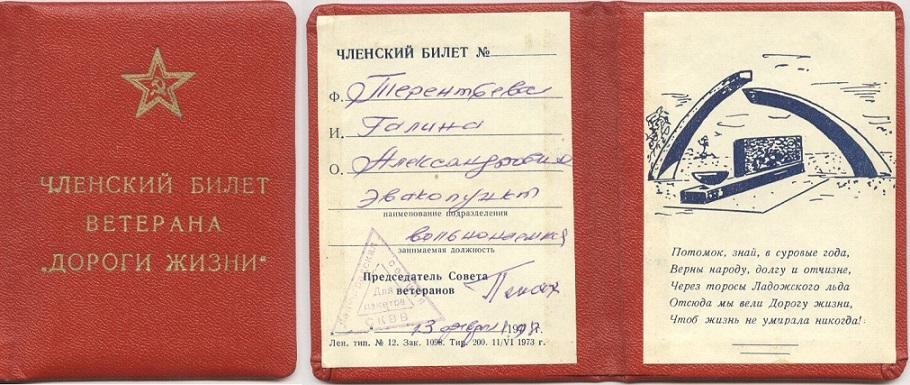 ЧЛЕНСКИЙ БИЛЕТ
ВЕТЕРАНА
„ДОРОГИ ЖИЗНИ“
ЧЛЕНСКИЙ БИЛЕТ №
Ф. Терентьева
И. Галина
О. Александровна
Эвакопункт
наименование подразделения
вольнонаемная
занимаемая должность
Председатель Совета
ветеранов
Для
пакетов
СКВВ
13 февраля 1978 г.
Лен. тип. № 12. Зак. 1098. Тир. 200. 11/VI 1973 г.
Потомок, знай, в суровые года,
Верны народу, долгу и отчизне,
Через торосы Ладожского льда
Отсюда мы вели Дорогу жизни,
Чтоб жизнь не умирала никогда!